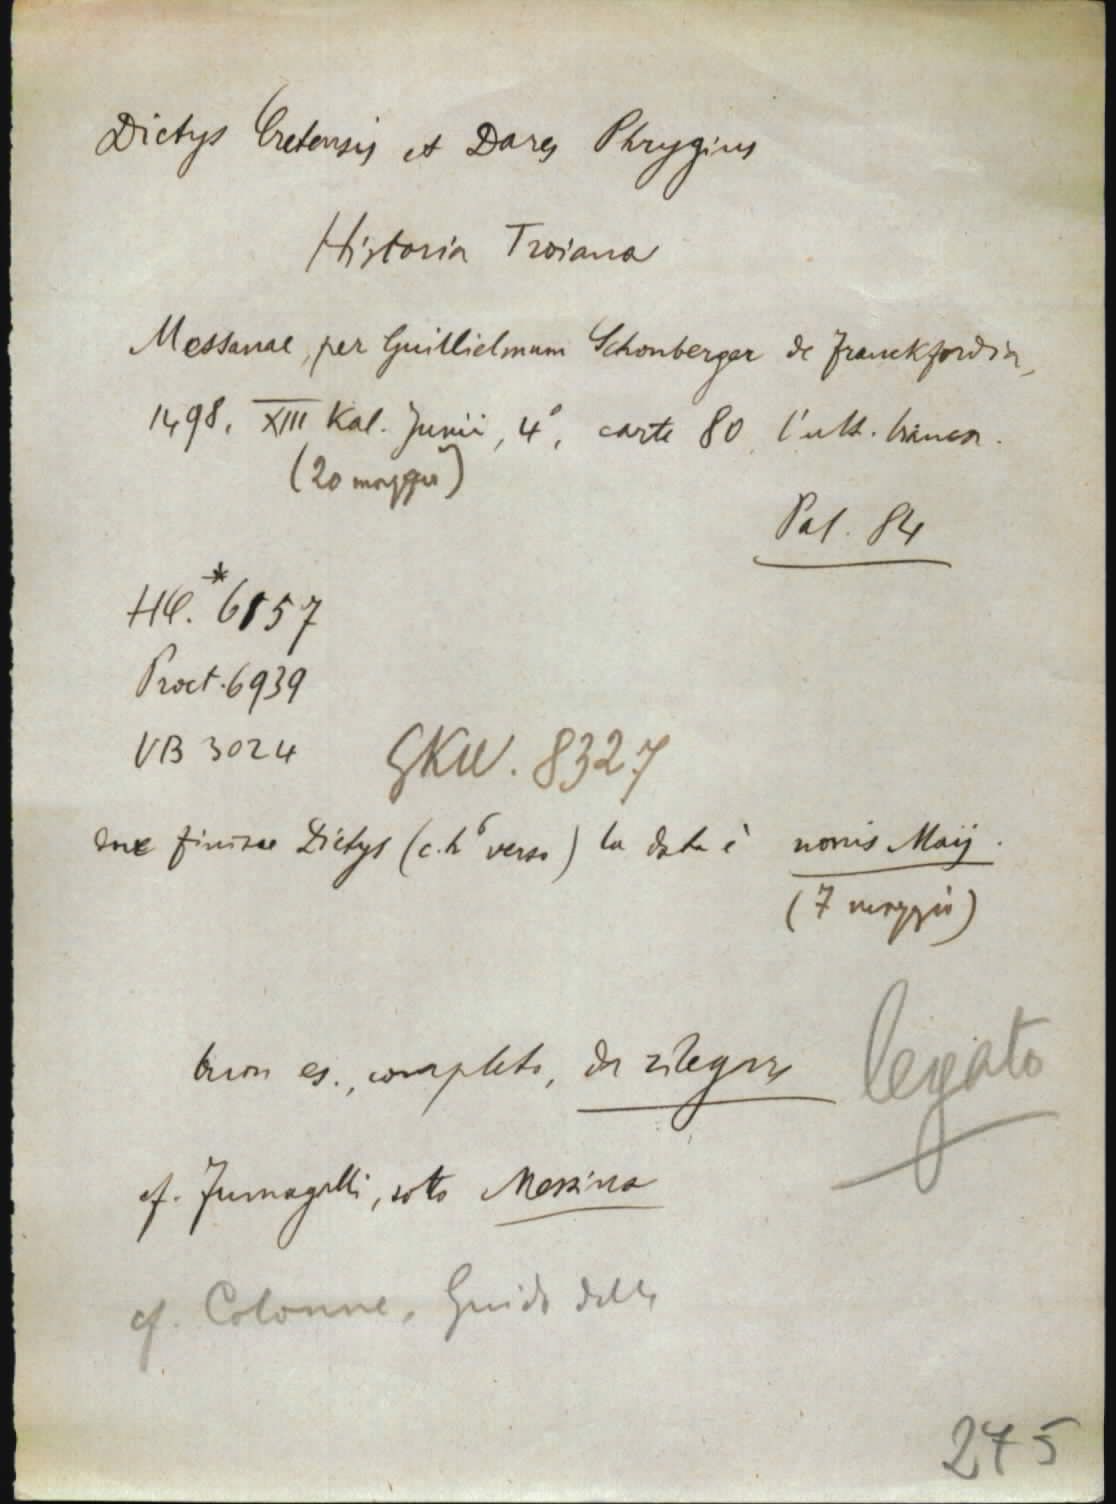 Dictys Cretensis et Dares Phrygius
Historia Troiana
Messanae, per Guillielmum Schonberger de Franckfordia,
1498, XIII Kal. Junii, 4°, carte 80, l'ult. bianca.
(20 maggio)
Pal. 84
HC. *6157
Proct. 6939
VB 3024
GKW. 8327
dove finisce Dictys (c. h6 verso) la data è nonis Maij.
(7 maggio)
buon es., completo, da rilegare
legato
cf. Fumagalli, sotto Messina
cf. Colonne, Guido delle
275